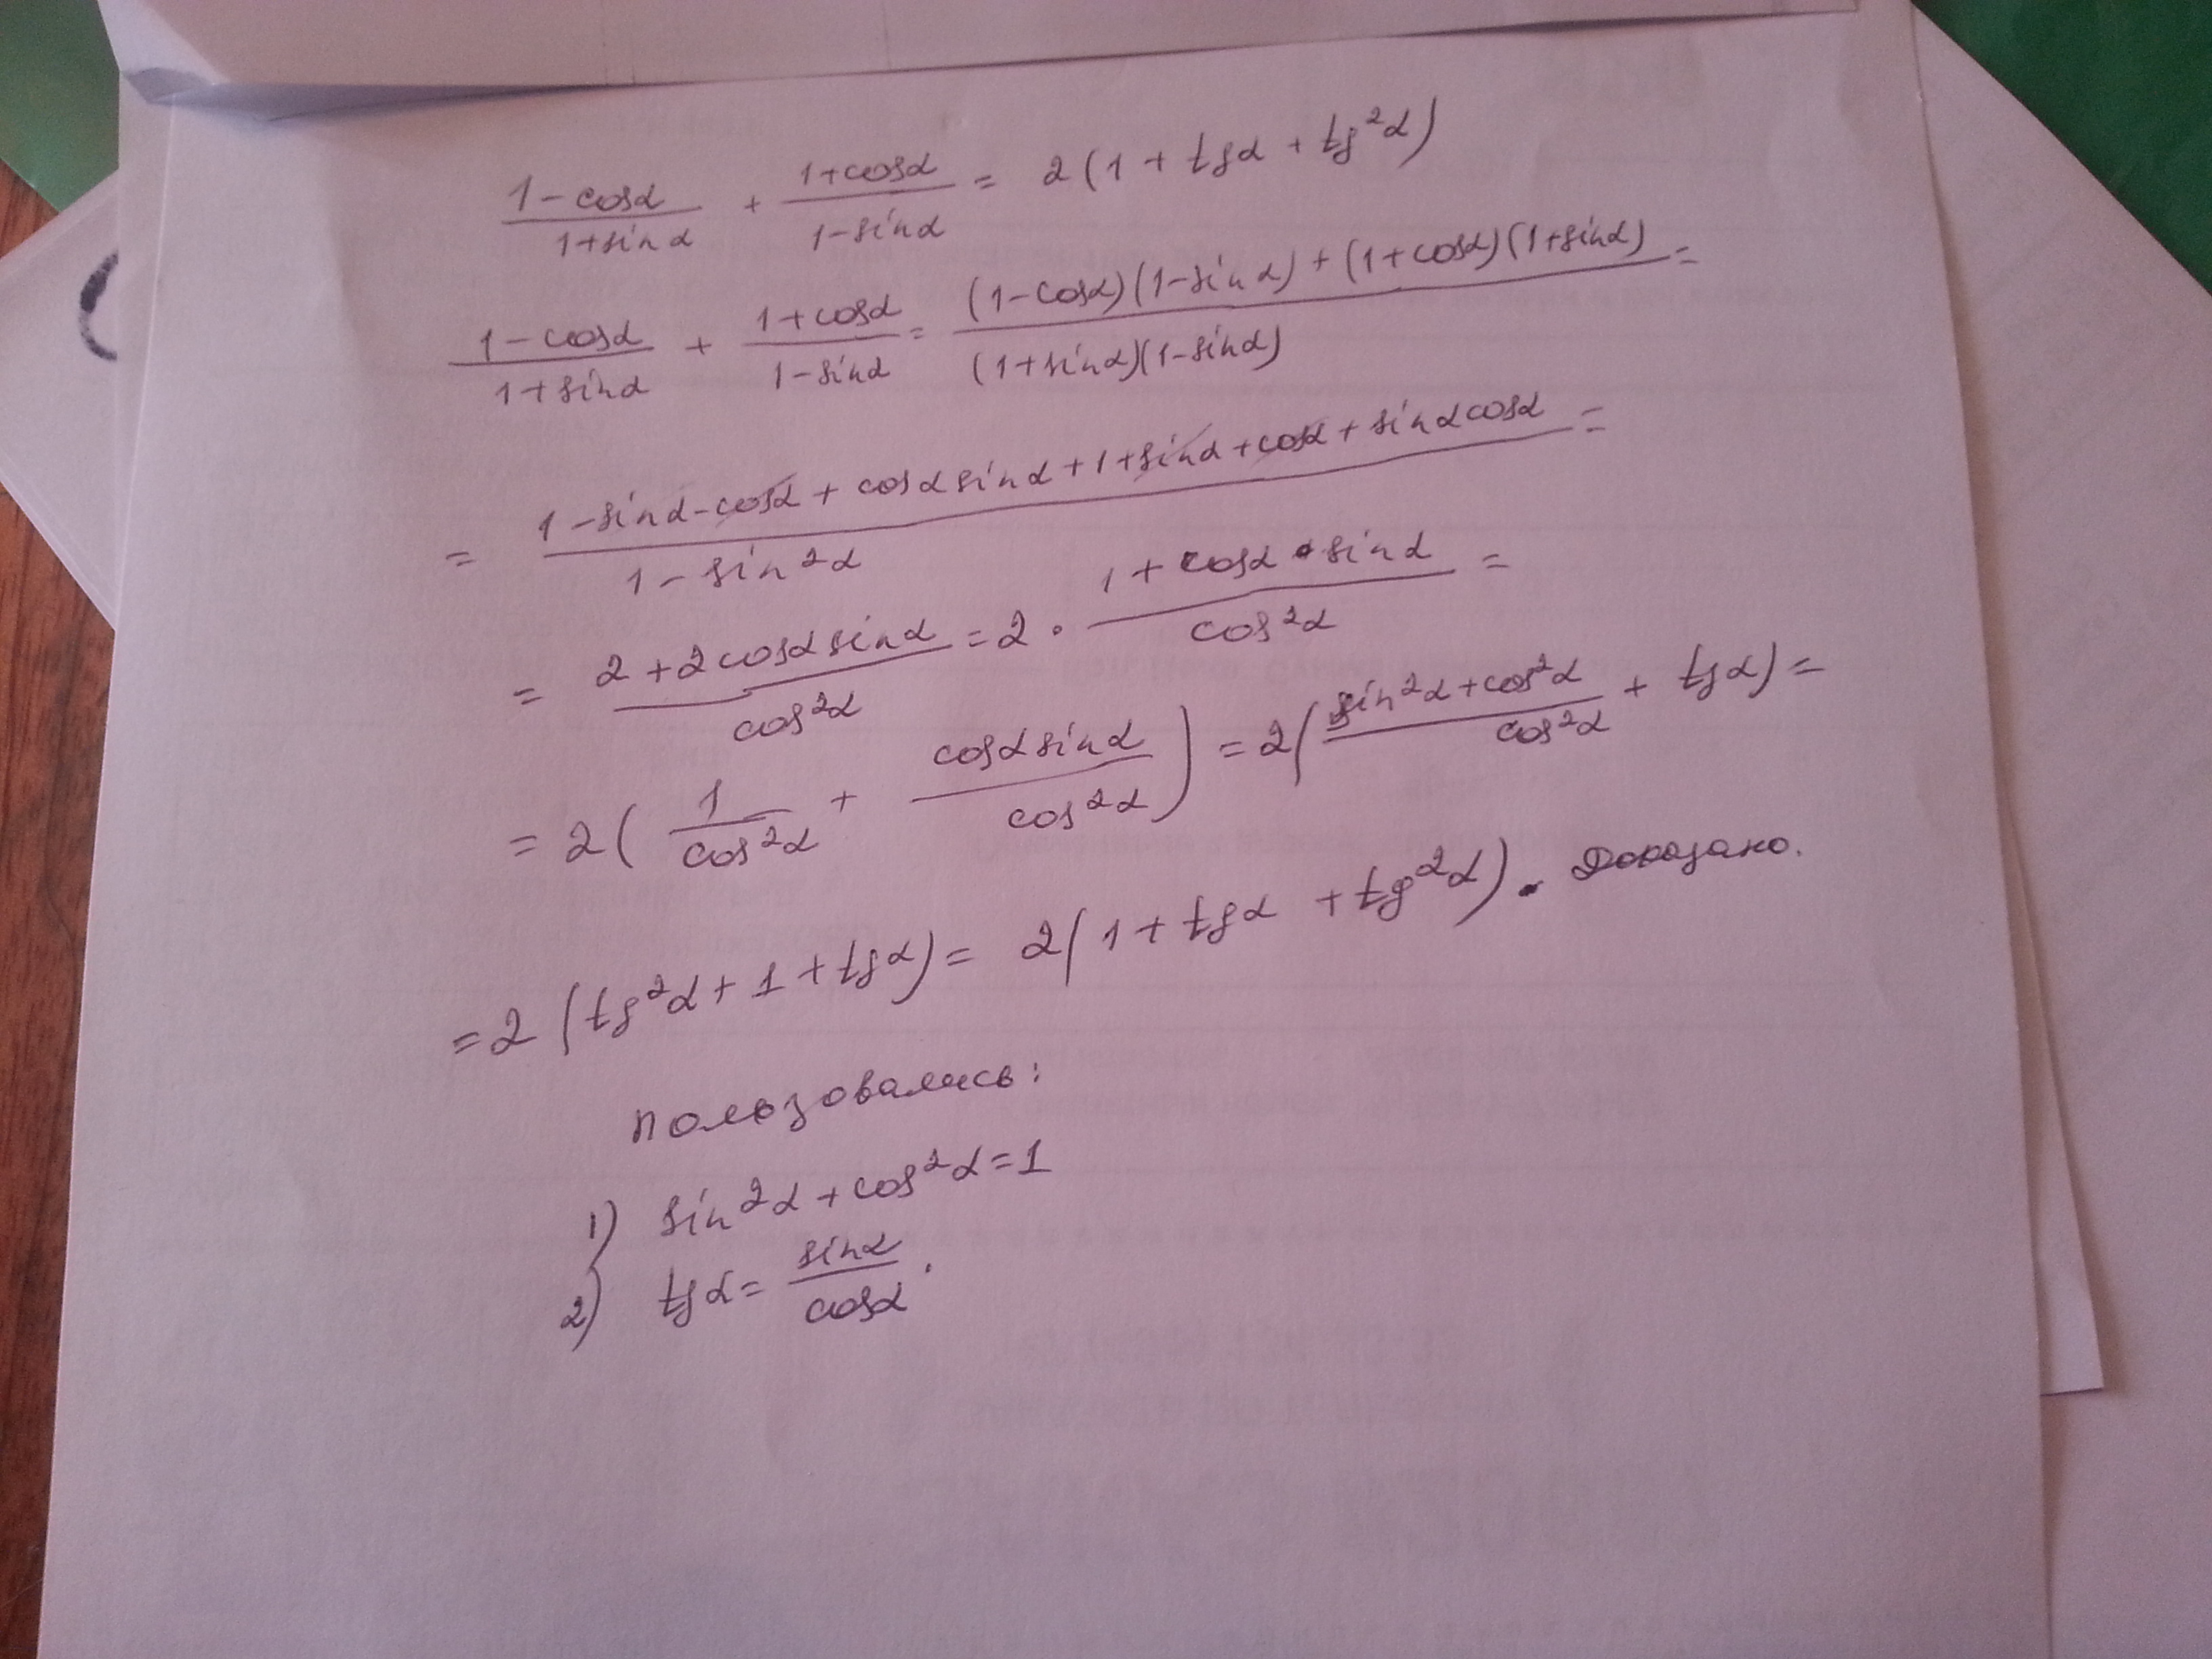 (1-cosα)/(1+sinα) + (1+cosα)/(1-sinα) = 2(1 + tgα + tg²α)
(1-cosα)/(1+sinα) + (1+cosα)/(1-sinα) = ((1-cosα)(1-sinα)+(1+cosα)(1+sinα))/((1+sinα)(1-sinα)) =
= (1-sinα-cosα+cosαsinα+1+sinα+cosα+sinαcosα)/(1-sin²α) =
= (2+2cosαsinα)/(cos²α) = 2 · (1+cosα·sinα)/(cos²α) =
= 2(1/(cos²α) + (cosαsinα)/(cos²α)) = 2((sin²α+cos²α)/(cos²α) + tgα) =
= 2(tg²α+1+tgα) = 2(1+tgα+tg²α). Доказано.
Пользовались:
1) sin²α+cos²α=1
2) tgα = sinα/cosα.